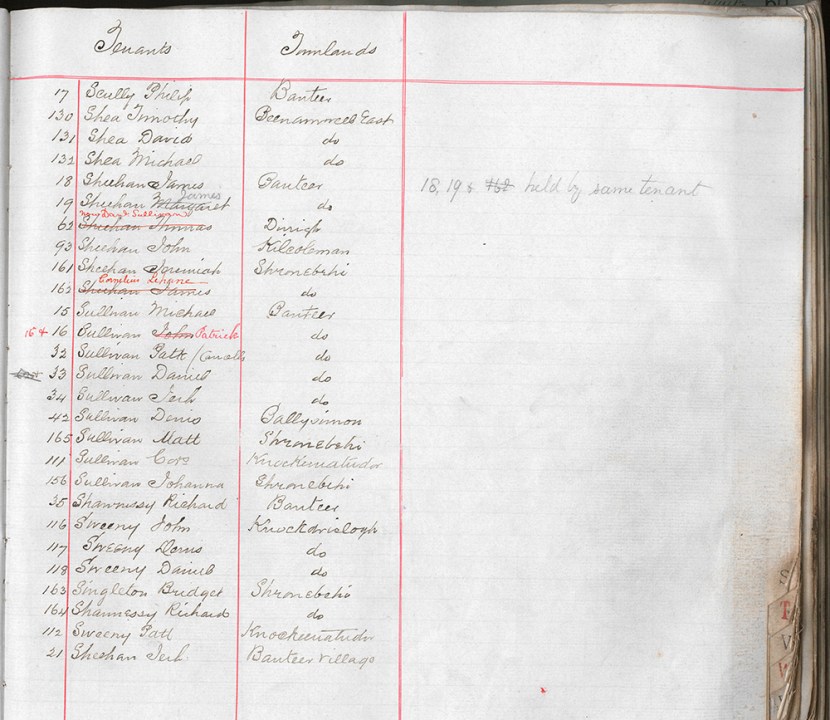 Tenants Townlands
17 Scully Philip Banteer
130 Shea Timothy Beennamweel East
131 Shea David do
132 Shea Michael do
18 Sheehan James Banteer 18, 19 & 162 held by same tenant
James
19 Sheehan Margaret do
now David Sullivan
62 Sheehan Thomas Dirrigh
93 Sheehan John Kilcoleman
161 Sheehan Jeremiah Shronebehi
Cornelius Lehane
162 Sheehan James do
15 Sullivan Michael Banteer
15 & 16 Sullivan John Patrick do
32 Sullivan Patk do
33 Sullivan Daniel do
34 Sullivan Jerh do
42 Sullivan Denis Ballysimon
165 Sullivan Matt Shronebehi
111 Sullivan Cors
156 Sullivan Johanna Shronebehi
35 Shannessy Richard Banteer
116 Sweeny John Knockdrislogh
117 Sweeny Denis do
118 Sweeny Daniel do
163 Singleton Bridget Shronebehi
164 Shannessy Richard do
112 Sweeny Patt
21 Sheehan Jerh Banteer Village
S
T
V
W